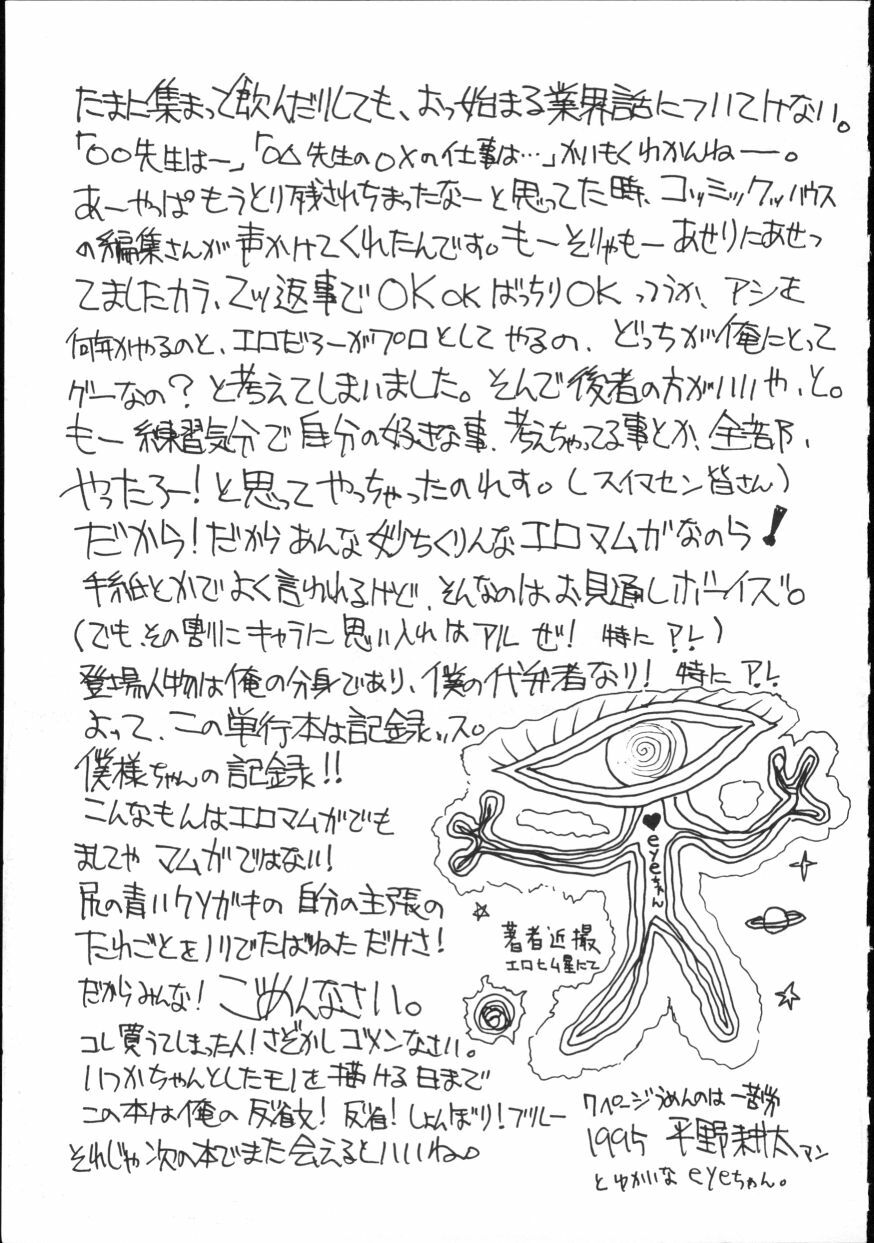 たまに集まって飲んだりしても、おっ始まる業界話についてけない。
「○○先生はー」「○△先生の○×の仕事は…」かいもくわかんねー。
あーやっぱもうとり残されちまったなーと思ってた時、コッミックッハウス
の編集さんが声かけてくれたんです。もーそりゃもーあせりにあせっ
てましたカラ、ニッ返事でOKOKばっちりOKってうか、アシを
何年かやるのと、エロだろーがプロとしてやるの、どっちが俺にとって
ゲーなの?と考えてしまいました。そんで後者の方がいいや、と。
もー練習気分で自分の好きな事、考えちゃってる事とか、全部、
やったろー!と思ってやっちゃったのれす。(スイマセン皆さん)
だから!だからあんな妙ちくりんなエロマムガなのら!
手紙とかでよく言われるけど、そんなのはお見通しボーイズ。
(でも、その割にキャラに思い入れはアルぜ!特にアレ)
登場人物は俺の分身であり、僕の代弁者なり!特にアレ
よって、この単行本は記録ッス。
僕様ちゃんの記録!!
こんなもんはエロマムガでも
ましてやマムガではない!
尻の青いクソガキの自分の主張の
たれごとをノリでたばねただけさ!
だからみんな!ごめんなさい。
コレ買うてしまった人!さぞかしゴメンなさい。
いつかちゃんとしたモノを描ける日まで
この本は俺の反省文!反省!しょんぼり!ブルー
それじゃ次の本でまた会えるといいね。
♥eyeちゃん
著者近撮
エロヒム星にて
7ページうめんのは一苦労
1995 平野耕太マン
とゆかいなeyeちゃん。